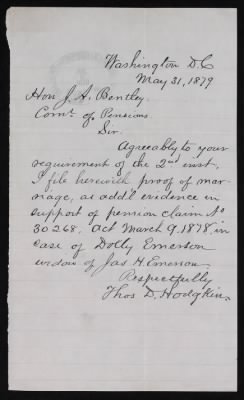 Washington D.C
May 31, 1879
Hon J. A. Bentley.
Comr. of Pensions.
Sir.
Agreeably to your
requirement of the 2nd inst,
I file herewith proof of mar-
riage, as add'l evidence in
support of pension claim No
30268, Act March 9, 1878, in
case of Dolly Emerson
widow of Jas H. Emerson
Respectfully
Thos D. Hodgkins